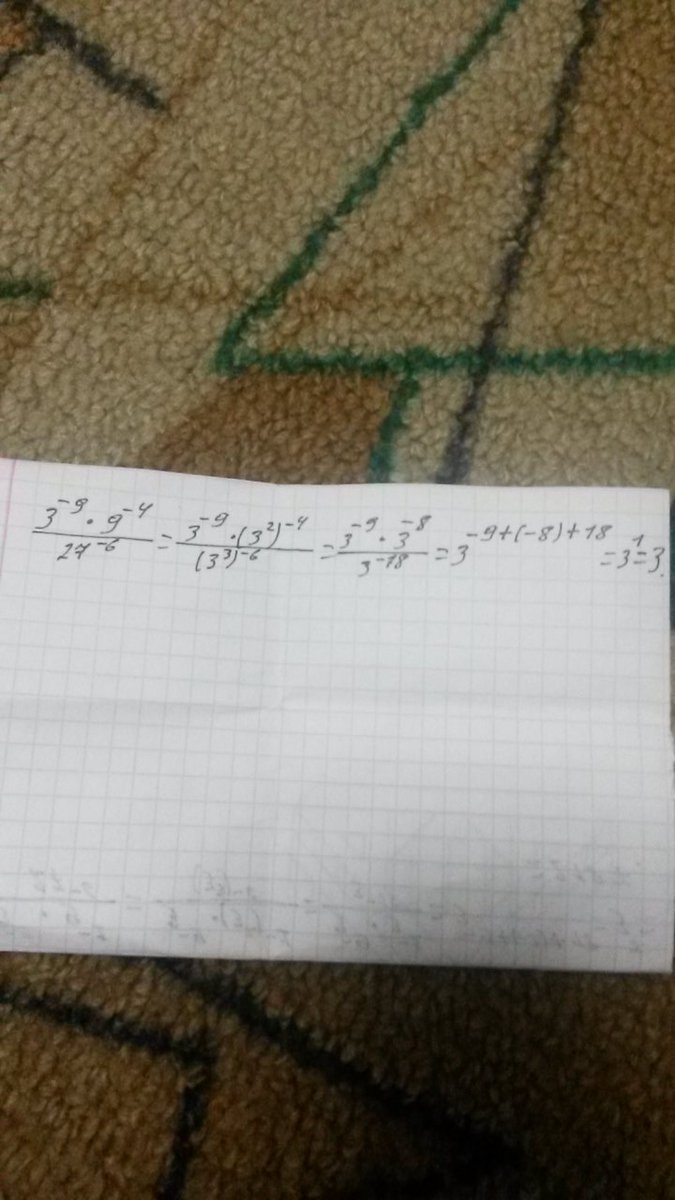 3⁻⁹ · 9⁻⁴ / 27⁻⁶ = 3⁻⁹ · (3²)⁻⁴ / (3³)⁻⁶ = 3⁻⁹ · 3⁻⁸ / 3⁻¹⁸ = 3⁻⁹⁺⁽⁻⁸⁾⁺¹⁸ = 3¹ = 3.